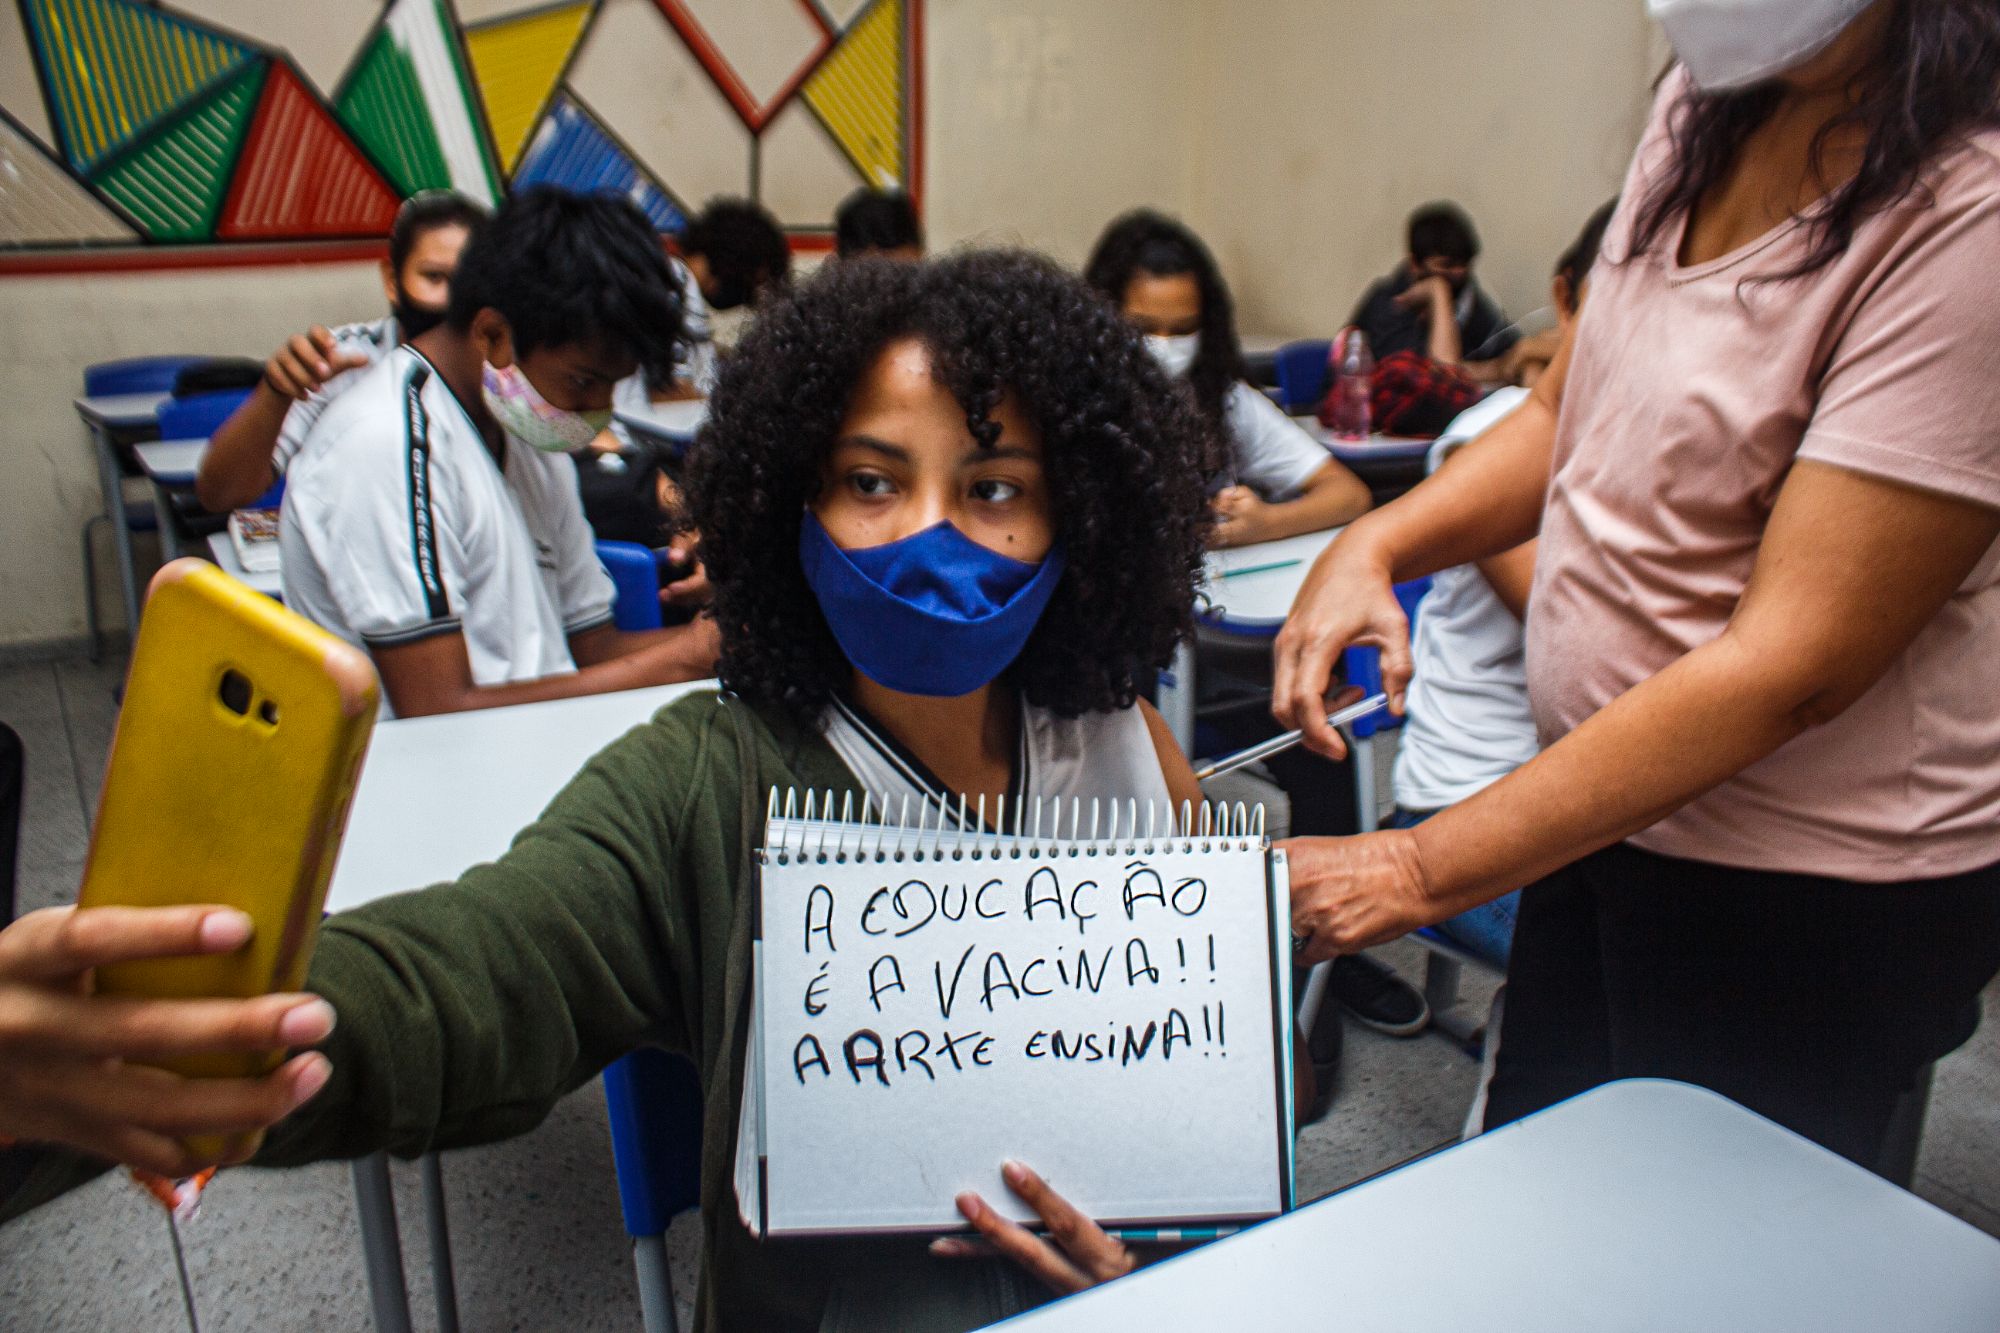 A EDUCAÇÃO
É A VACINA!!
A ARTE ENSINA!!